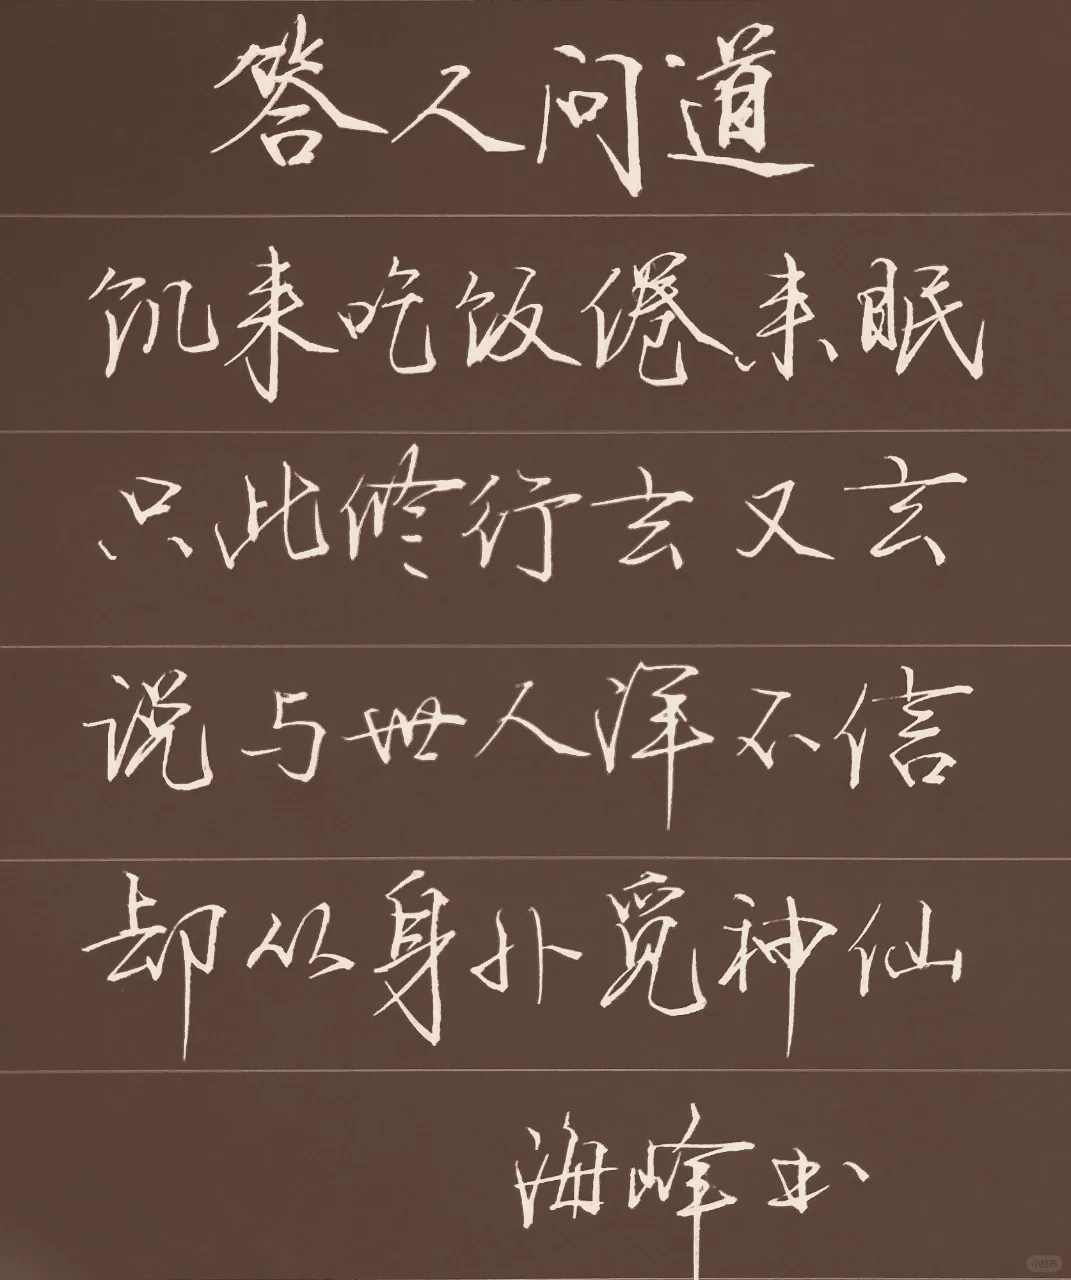 答人问道
饥来吃饭倦来眠
只此修行玄又玄
说与世人浑不信
却从身外觅神仙
海峰书
小红书